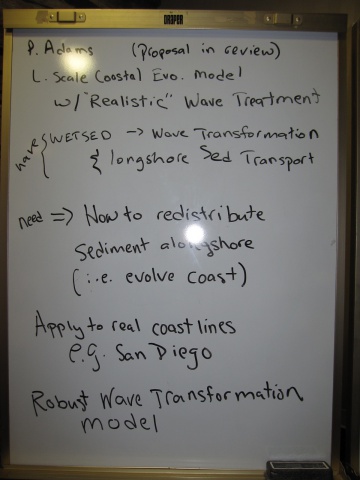 DRAPER
P. Adams (Proposal in review)
L. Scale Coastal Evo. model
w/ "Realistic" Wave Treatment
have { WETSED -> Wave Transformation
& longshore Sed Transport
need => How to redistribute
sediment alongshore
(i.e. evolve coast)
Apply to real coastlines
e.g. San Diego
Robust Wave Transformation
model